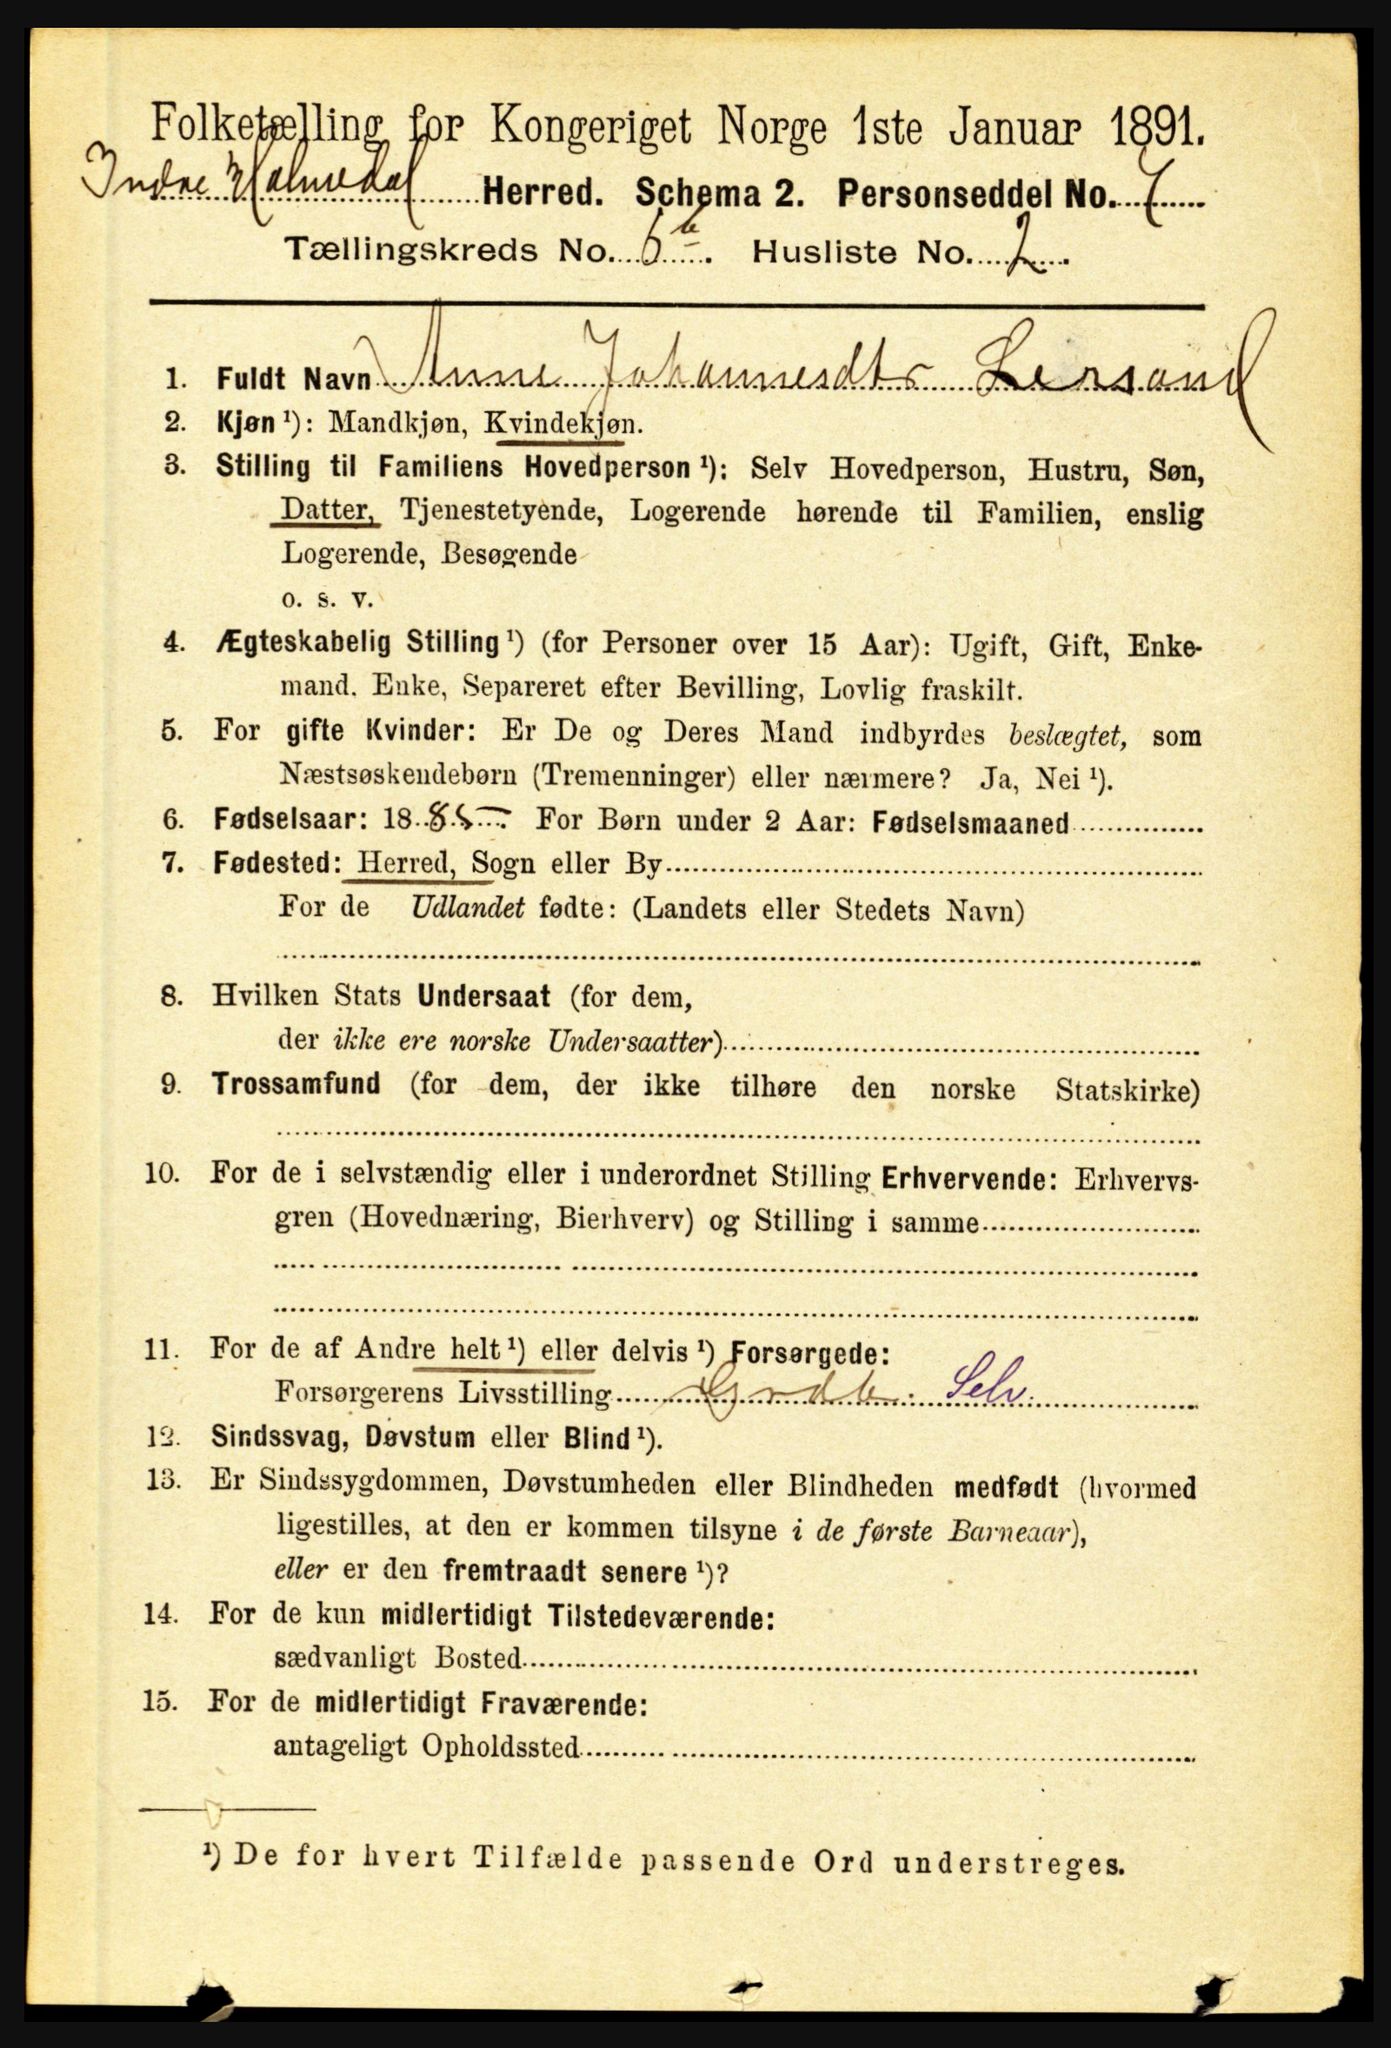 Folketælling for Kongeriget Norge 1ste Januar 1891.
Indre Holmedal Herred. Schema 2. Personseddel No. 7
Tællingskreds No. 6b. Husliste No. 2.
1. Fuldt Navn Anne Johannesdtr
2. Kjøn ¹): Mandkjøn, Kvindekjøn.
3. Stilling til Familiens Hovedperson ¹): Selv Hovedperson, Hustru, Søn,
Datter, Tjenestetyende, Logerende hørende til Familien, enslig
Logerende, Besøgende
o. s. v.
4. Ægteskabelig Stilling ¹) (for Personer over 15 Aar): Ugift, Gift, Enke-
mand. Enke, Separeret efter Bevilling, Lovlig fraskilt.
5. For gifte Kvinder: Er De og Deres Mand indbyrdes beslægtet, som
Næstsøskendebørn (Tremenninger) eller nærmere? Ja, Nei ¹).
6. Fødselsaar: 1885. For Børn under 2 Aar: Fødselsmaaned
7. Fødested: Herred, Sogn eller By
For de Udlandet fødte: (Landets eller Stedets Navn)
8. Hvilken Stats Undersaat (for dem,
der ikke ere norske Undersaatter)
9. Trossamfund (for dem, der ikke tilhøre den norske Statskirke)
10. For de i selvstændig eller i underordnet Stilling Erhvervende: Erhvervs-
gren (Hovednæring, Bierhverv) og Stilling i samme
11. For de af Andre helt ¹) eller delvis ¹) Forsørgede:
Forsørgerens Livsstilling Grdb. Selv.
12. Sindssvag, Døvstum eller Blind ¹).
13. Er Sindssygdommen, Døvstumheden eller Blindheden medfødt (hvormed
ligestilles, at den er kommen tilsyne i de første Barneaar),
eller er den fremtraadt senere ¹)?
14. For de kun midlertidigt Tilstedeværende:
sædvanligt Bosted
15. For de midlertidigt Fraværende:
antageligt Opholdssted
¹) De for hvert Tilfælde passende Ord understreges.